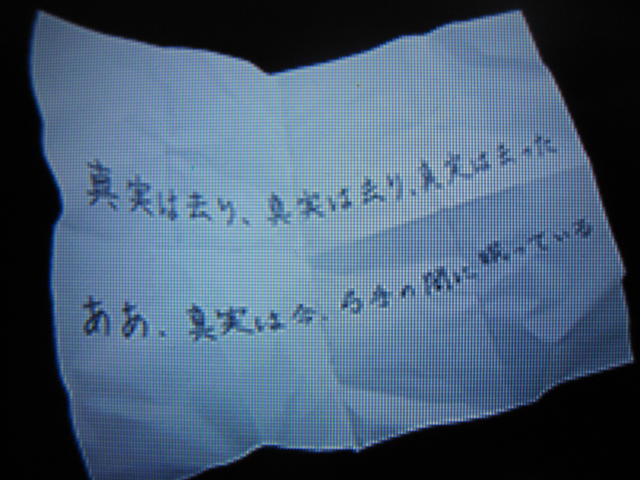 真実は去り、真実は去り、真実は去った
ああ、真実は今、右手の間に眠っている